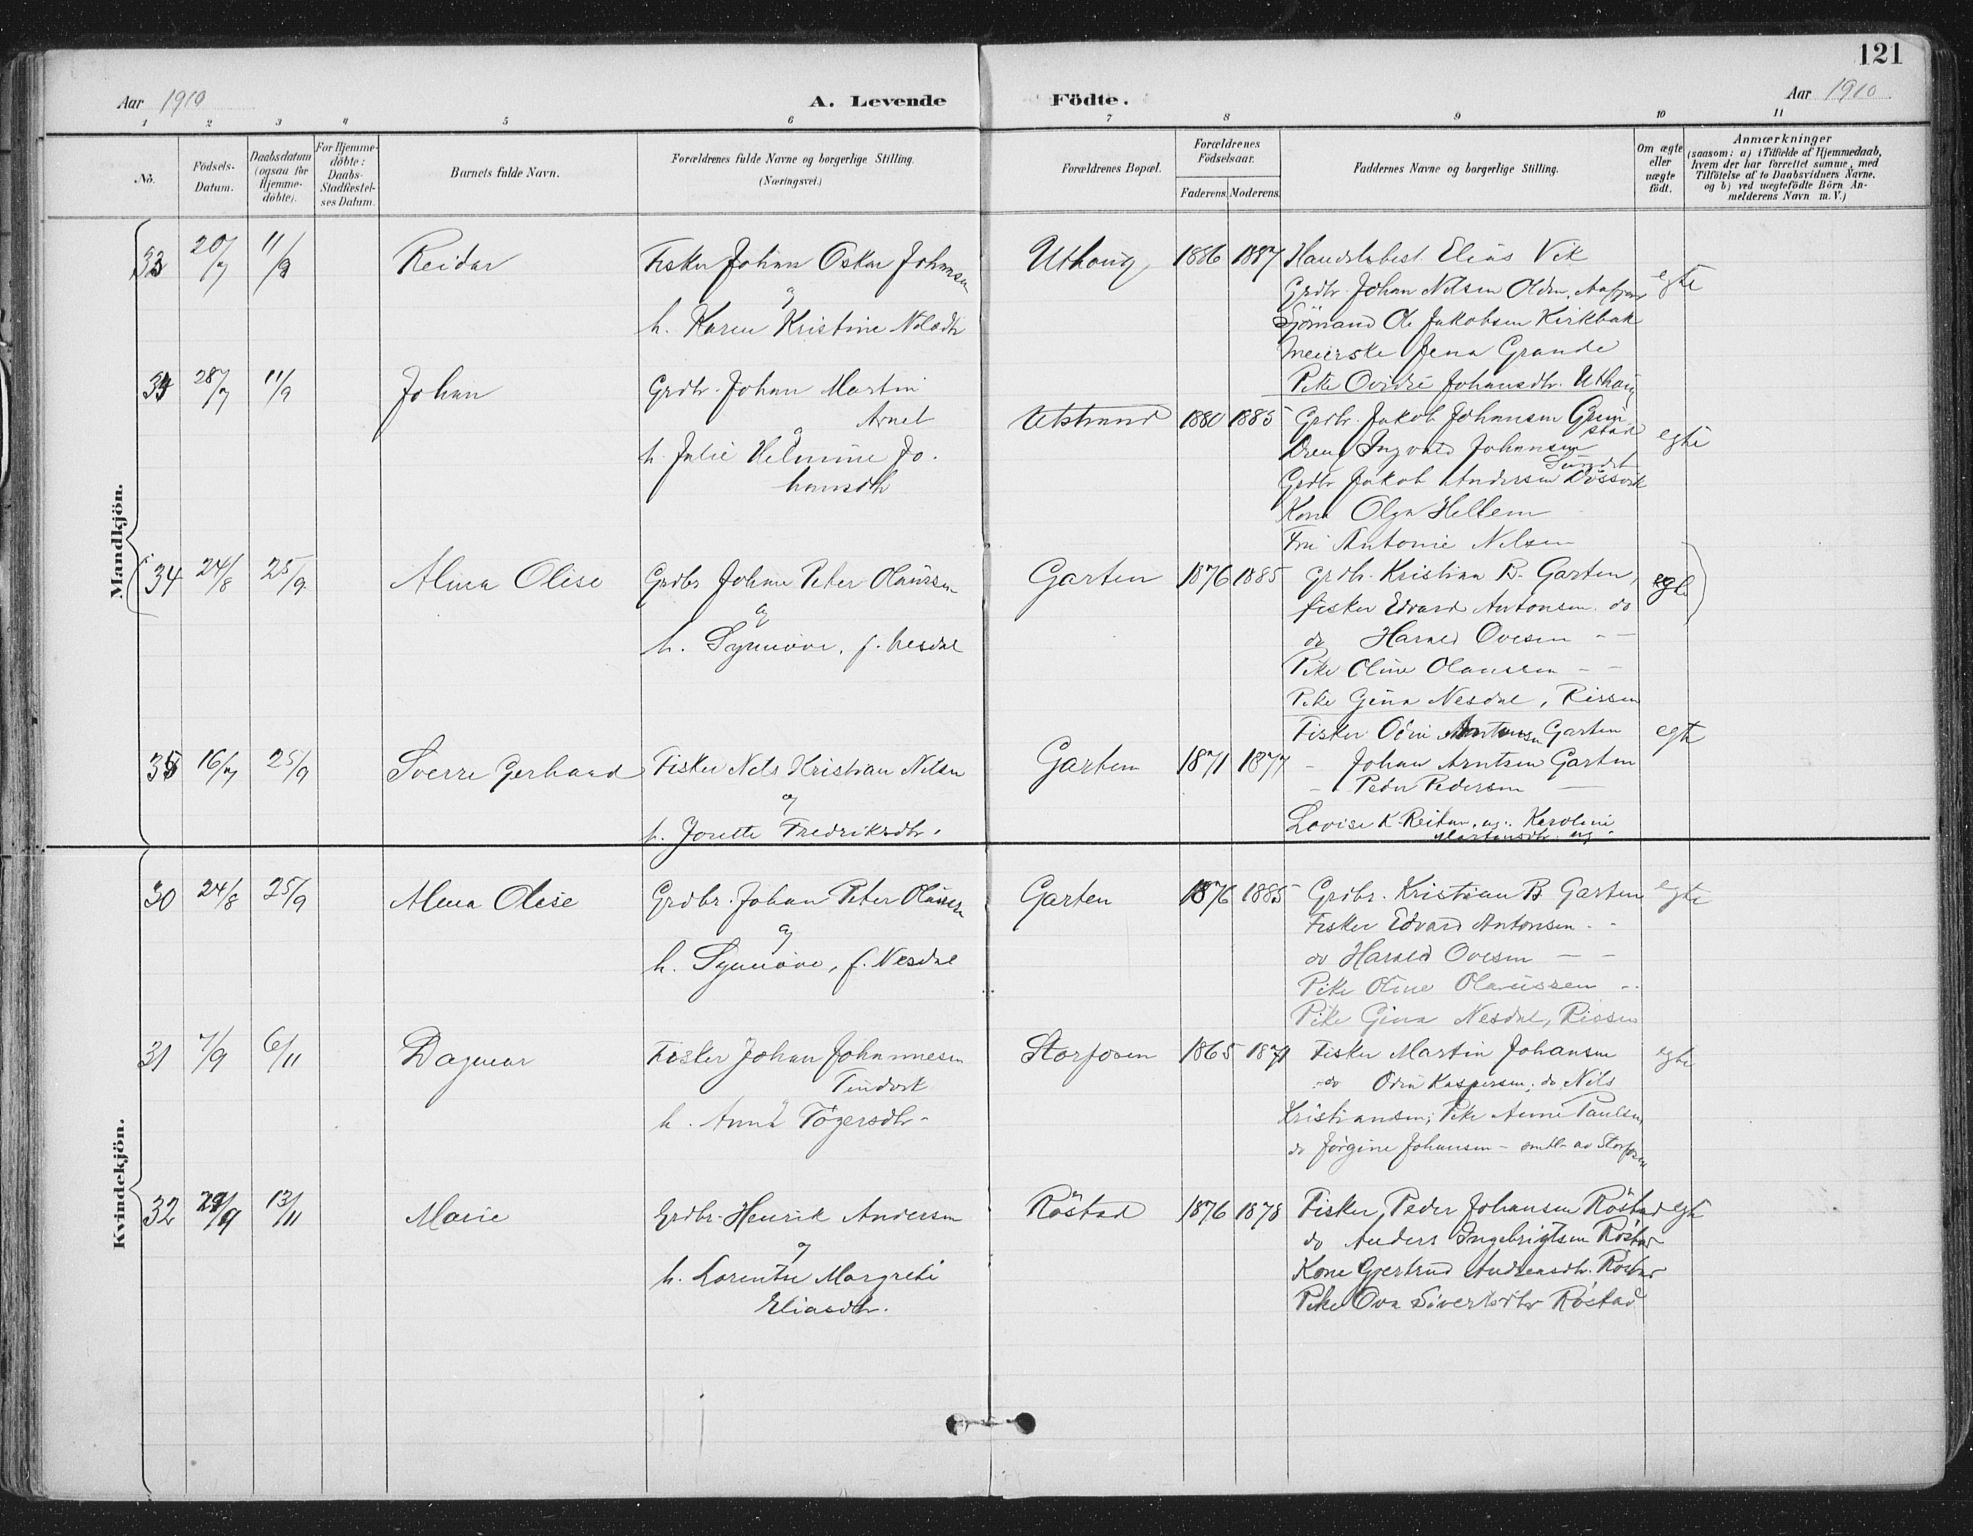 121
Aar 1910 A. Levende Födte. Aar 1910
1 2 3 4 5 6 7 8 9 10 11
No.
Födsels-Datum.
Daabsdatum (ogsaa for Hjemme-døbte).
For Hjemme-døbte: Daabs-Stadfæstel-ses Datum.
Barnets fulde Navn.
Forældrenes fulde Navne og borgerlige Stilling.
(Næringsvei.)
Forældrenes Bopæl.
Forældrenes Födselsaar.
Faderens. Moderens.
Faddernes Navne og borgerlige Stilling.
Om ægte eller uægte födt.
Anmærkninger
(saasom: a) i Tilfælde af Hjemmedaab,
hvem der har forrettet samme, med
Tilföielse af to Daabsvidners Navne.
og b) ved uægtefödte Börn An-
melderens Navn m. V.)
Mandkjön.
33 20/7 11/9 Reidar Fisker Johan Oskar Johansen Uthoug 1886 1887 Elias Vik
og Grdbr. Johan Nilsen Olden,
h. Karen Kristine Sjömand Ole Jakobsen Kirkbak
Meierske Jena Grande egte
Pike Johansdtr. Uthoug
34 28/7 11/9 Johan Grdbr. Johan Martin
Arnet Utstrand 1880 1885 Grdbr. Jakob Johansen
og Ingvald Johansen egte
h. Julie Helmine Jo- Grdbr Jakob Andersen
hansdtr Kone Olga Hellem
Fru Antonie Nilsen
34 24/8 25/9 Alma Olise Grdbr Johan Peter Olaussen Garten 1876 1885 Grdbr. Kristian B. Garten, egte
og fisker Edvard Antonsen do
h. Synnöve, f. Nesdal do Harald Ovesen - -
Pike Oline Olaussen - -
Pike Gina Nesdal, Rissen
35 16/7 25/9 Sverre Gerhard Fisker Nels Kristian Nilsen Garten 1871 1877 Fisker Odin Garten egte
og - Johan Arntsen Garten
h. Josette Fredriksdtr. - Peder Pedersen -
Lovise K Reitan, ug. Karoline
Martinsdtr. ug.
Kvindekjön.
30 24/8 25/9 Alma Olise Grdbr. Johan Peter Olaussen Garten 1876 1885 Grdbr. Kristian B Garten egte
og Fisker Edvard Antonsen - -
h. Synnöve, f. Nesdal do Harald Ovesen - -
Pike Oline Olaussen - -
Pike Gina Nesdal, Rissen
31 7/9 6/11 Dagmar Fisker Johan Johannesen Storfosen 1865 1871 Fisker Martin Johansen egte
do Odin Kaspersen, do Nils
h. Anna Kristiansen; Pike Anne Paulsen,
do Jørgine Johansen - av Storfosen
32 29/9 13/11 Marie Grdbr. Henrik Andersen Röstad 1876 1878 Fisker Peder Johansen Röstad egte
og do Anders Ingebrigtsen Röstad
h. Lorentse Margrete Kone Gjertrud Andreasdtr. Röstad
Eliasdtr. Pike Ova Sivertsdtr Röstad